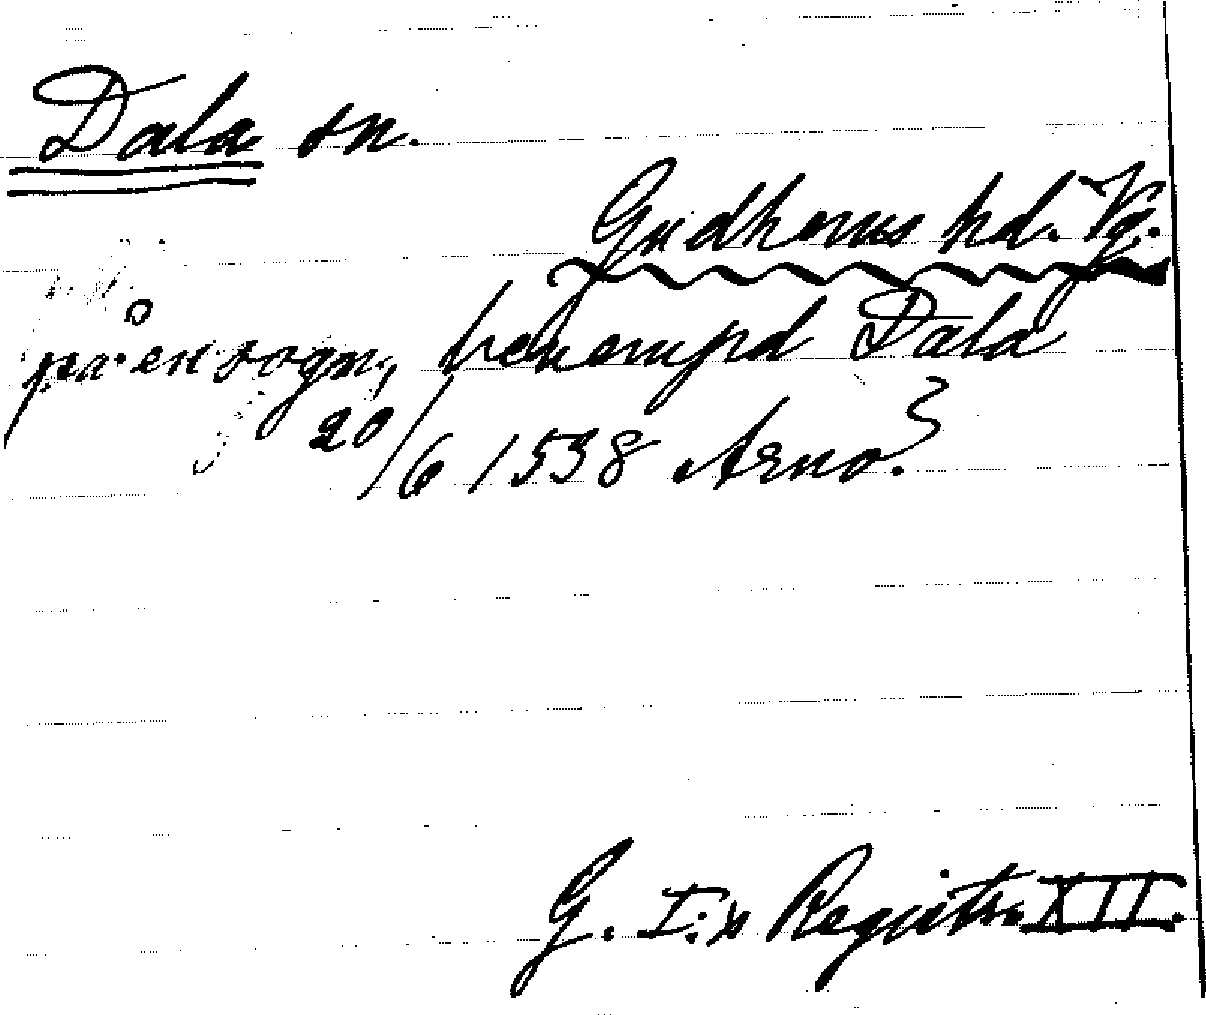 Dala sn.
Gudhems hd. Vg.
på en sogn, benempd Dala
20/6 1538 Arno.
G. I:s Registr. XII.